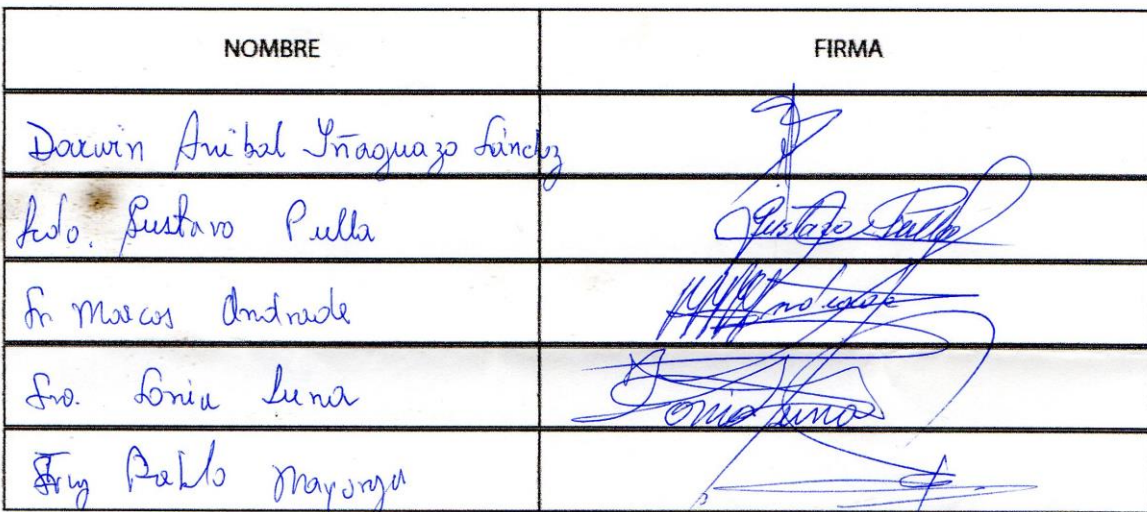 NOMBRE FIRMA
Darwin Anibal Iñaguazo Sánchez
Lcdo. Gustavo Pulla Gustavo Pulla
Sr Marcos Andrade Andrade
Sra. Sonia Luna Sonia Luna
Ing Pablo Mayorga